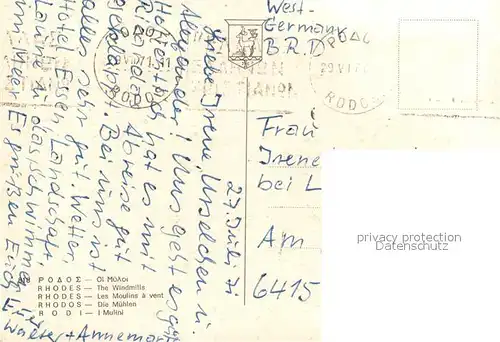 27. Juli 71
Liebe Irene, Uselchen u.
Alexander! Uns geht es gut
Hoffentlich hat es mit
Abreise gut
geklappt. Bei uns ist
alles sehr gut. Wetter,
Hotel, Essen, Landschaft,
Laune u. das Schwimmen
im Meer. Es grüßen Euch
Walter + Annemarie
West-
Germany
B.R.D
Frau
Irene
bei L
Am
6415
ΡΟΔΟΣ
RODOS
ΡΟΔΟΣ — Οἱ Μύλοι
RHODES — The Windmills
RHODES — Les Moulins à vent
RHODOS — Die Mühlen
RODI — I Mulini
privacy protection
Datenschutz